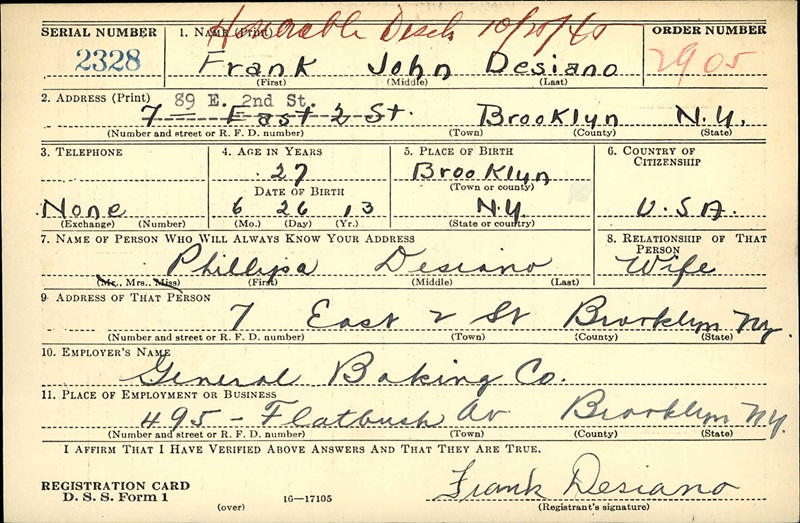 Honorable Disch 10/20/45
SERIAL NUMBER 1. NAME (Print) ORDER NUMBER
2328 Frank John Desiano 2905
(First) (Middle) (Last)
2. ADDRESS (Print) 89 E. 2nd St.
7 East 2 St. Brooklyn N.Y.
(Number and street or R. F. D. number) (Town) (County) (State)
3. TELEPHONE 4. AGE IN YEARS 5. PLACE OF BIRTH 6. COUNTRY OF CITIZENSHIP
27 Brooklyn
DATE OF BIRTH (Town or county)
None 6 26 13 N.Y. U.S.A.
(Exchange) (Number) (Mo.) (Day) (Yr.) (State or country)
7. NAME OF PERSON WHO WILL ALWAYS KNOW YOUR ADDRESS 8. RELATIONSHIP OF THAT PERSON
Phillipa Desiano Wife
(Mr., Mrs., Miss) (First) (Middle) (Last)
9 ADDRESS OF THAT PERSON
7 East 2 St Brooklyn Ny.
(Number and street or R. F. D. number) (Town) (County) (State)
10. EMPLOYER'S NAME
General Baking Co.
11. PLACE OF EMPLOYMENT OR BUSINESS
495 - Flatbush Av Brooklyn NY.
(Number and street or R. F. D. number) (Town) (County) (State)
I AFFIRM THAT I HAVE VERIFIED ABOVE ANSWERS AND THAT THEY ARE TRUE.
REGISTRATION CARD
D. S. S. Form 1 (over) 16—17105
Frank Desiano
(Registrant's signature)